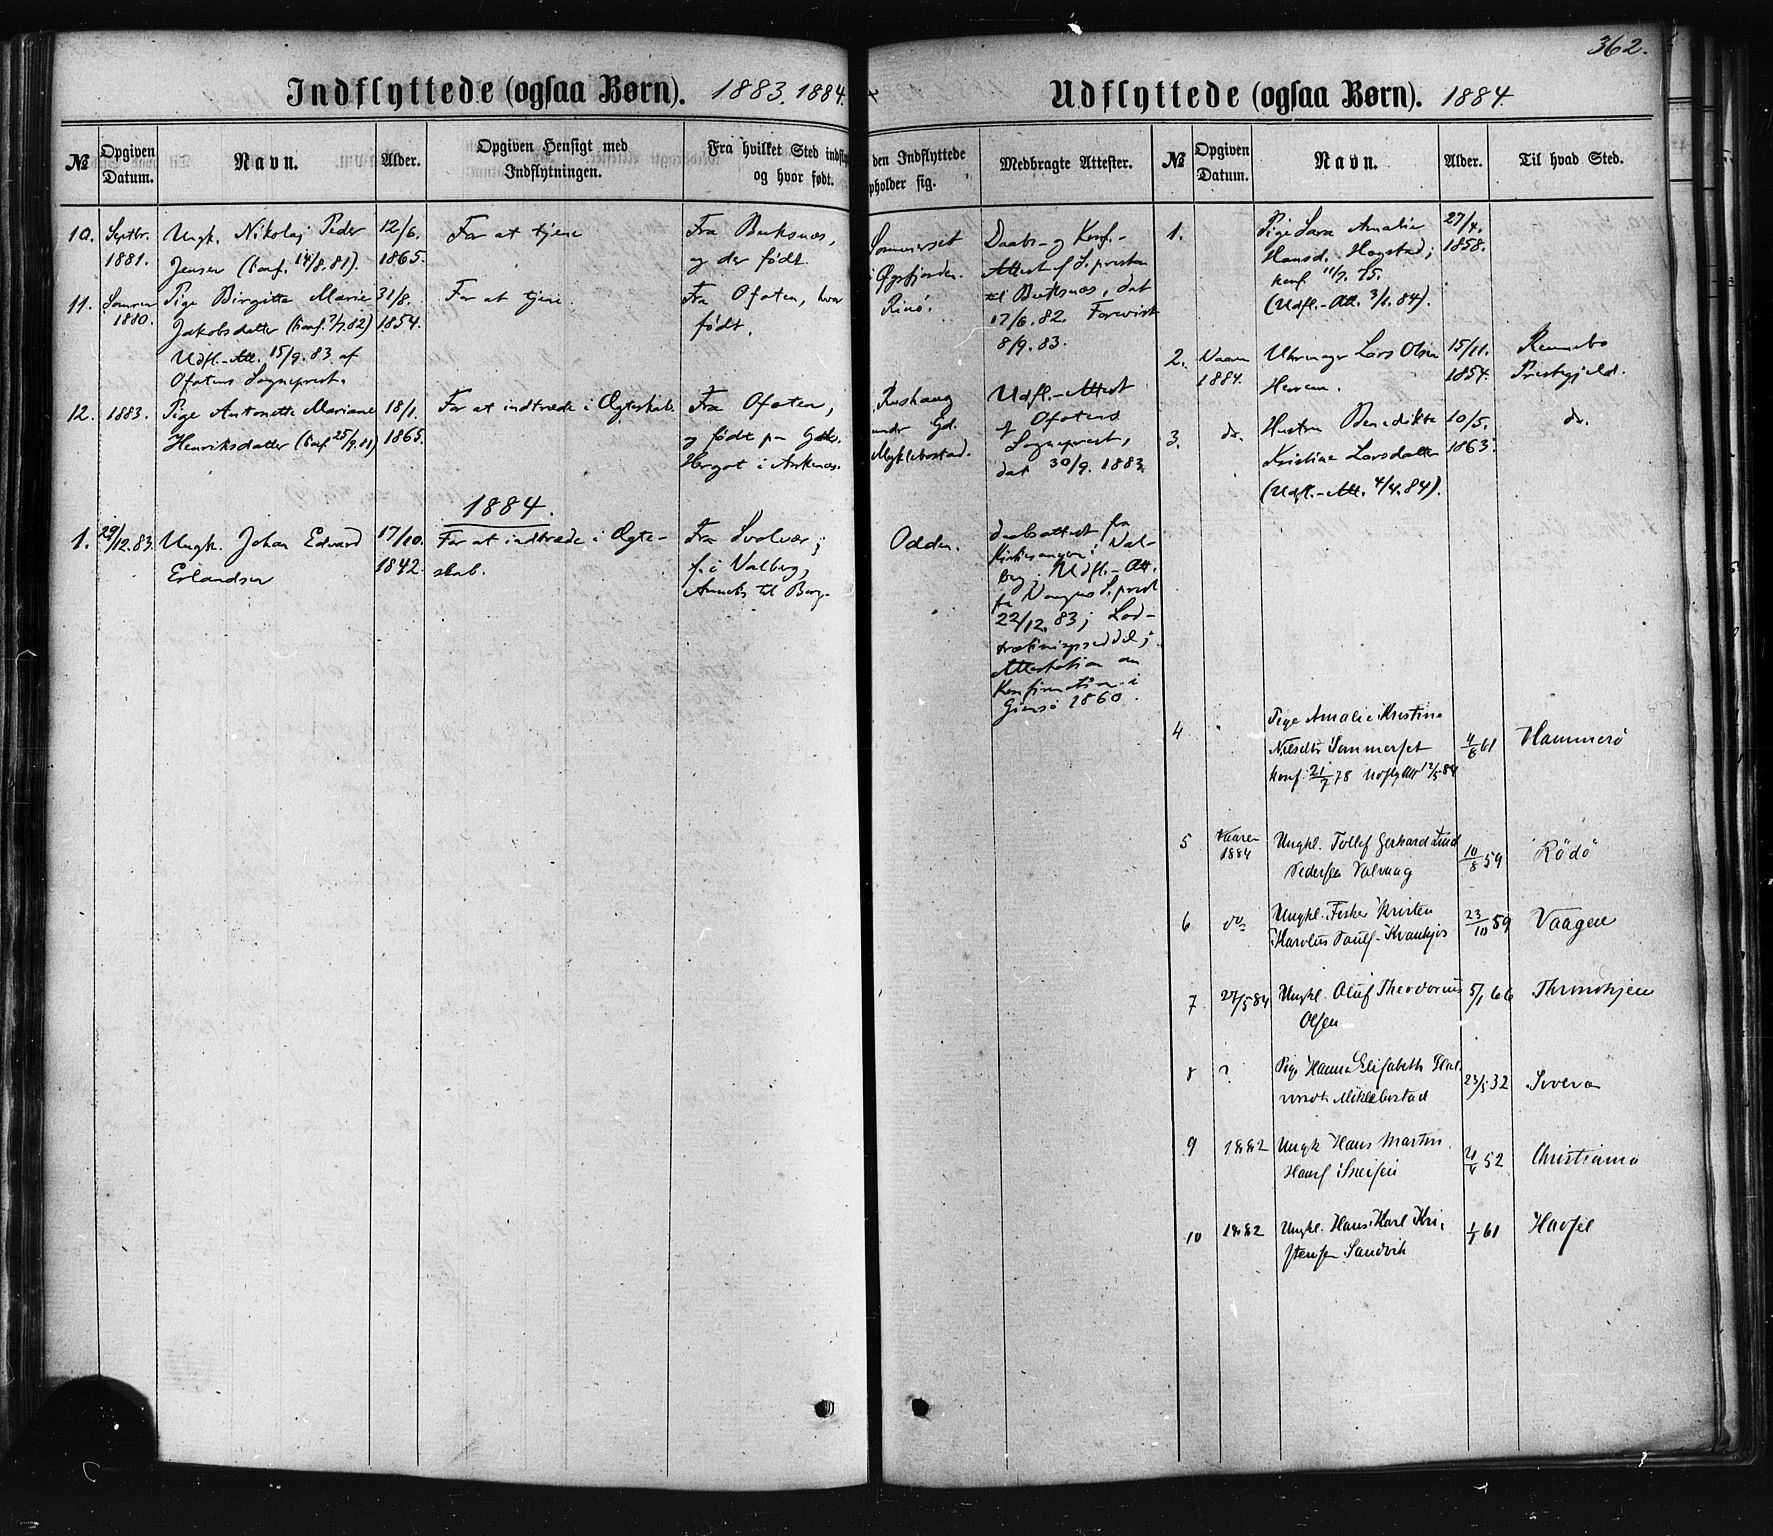 362.
Indflyttede (ogsaa Børn). 1883. 1884.
№ Opgiven Datum. Navn. Alder. Opgiven Hensigt med Indflytningen. Fra hvilket Sted indfly og hvor født. den Indflyttede pholder sig. Medbragte Attester.
10. Septbr. 1881.
Ungk. Nikolaj Peder
Jensen (konf. 14/8. 81).
12/6. 1865.
For at tjene
Fra Buksnæs,
og der født.
Sommerset
i Øgsfjorden.
Daabs- og Konf.-
Attest af S.presten
til Buksnæs, dat
17/6. 82. Forevist
8/9. 83.
11. 1880.
Pige Birgitte Marie
Jakobsdatter (konf. 7/7. 82)
Udfl.-Att. 15/9. 83. af
Ofotens Sogneprest.
31/8. 1854.
For at tjene.
Fra Ofoten, hvor
født.
12. 1883.
Pige Antonette Mariane
Henriksdatter (konf. 25/9. 81)
18/1. 1865.
For at indtræde i Ægteskab.
Fra Ofoten,
og født pa
i Ankenæs.
Gd.
Myklebostad.
Udfl.-Attest
af Ofotens
Sogneprest,
dat 30/9. 1883.
1884.
1. 29/12. 83.
Ungk. Johan Edvard
Erlandsen
17/10. 1842.
For at indtræde i Ægte-
skab.
Fra Svolvær;
f. i Valberg,
Annex til Borge.
Odden.
Daabsattest fra
Kirkesangeren i Val-
berg; Udfl.-Att.
fra Vaagens S.prest
22/12. 83; Lod-
trækningsseddel;
Attestation om
Konfirmation i
Gimsø 1860.
Udflyttede (ogsaa Børn). 1884.
№ Opgiven Datum. Navn. Alder. Til hvad Sted.
1.
Pige Sara Amalie
Hansd. Hogstad;
konf. 11/7. 75.
(Udfl.-Att. 3/1. 84).
27/4. 1858.
2. Vaaren 1884.
Uhrmager Lars Olsen
15/11. 1854.
Rennebo
Prestegjeld.
3. do.
Hustru Benedikte
Kristine Larsdatter
(Udfl.-Att. 4/4. 84).
10/5. 1863.
do.
4 "
Pige Amalie Kristine
Nilsdtr Sommerset
konf. 21/7 78 Udflytt Att 12/5 84
4/8 61
Hammerø
5 Vaaren 1884
Ungkl. Tollef Gerhard Lind
Pedersen Valvaag
10/8 59
Rödö
6 do
Ungkl. Fisker Kristen
Karolus Pauls.
23/10 59
Vaagen
7 27/5 84
Ungkl. Oluf Theodorius
Olsen
5/1 66
Throndhjem
8 ?
Pige Hanna Elisabeth
Miklebostad
23/5 32
9 1882
Ungk Hans Martin
Hans.
52
Christiania
10 1882
Ungkl. Hans Karl Kri-
stensen Sandvik
1/1 61
Havsel